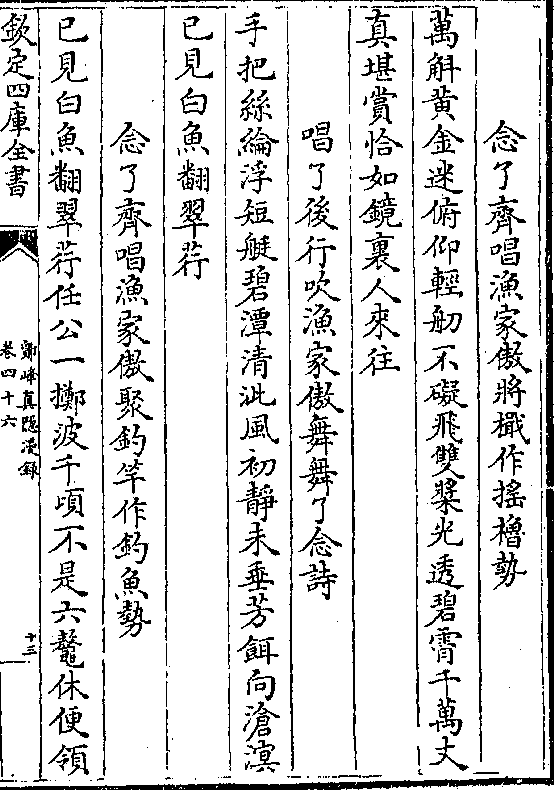 念了齊唱漁家傲將檝作摇櫓勢
萬斛黄金迷俯仰輕舠不礙飛雙槳光透碧霄千萬丈
真堪賞恰如鏡裏人來往
唱了後行吹漁家傲舞舞了念詩
手把絲綸浮短艇碧潭清泚風初靜未垂芳餌向滄溟
已見白魚翻翠荇
念了齊唱漁家傲聚釣竿作釣魚勢
已見白魚翻翠荇任公一擲波千頃不是六鼇休便領
欽定四庫全書
鄮峰真隱漫錄
卷四十六
十三